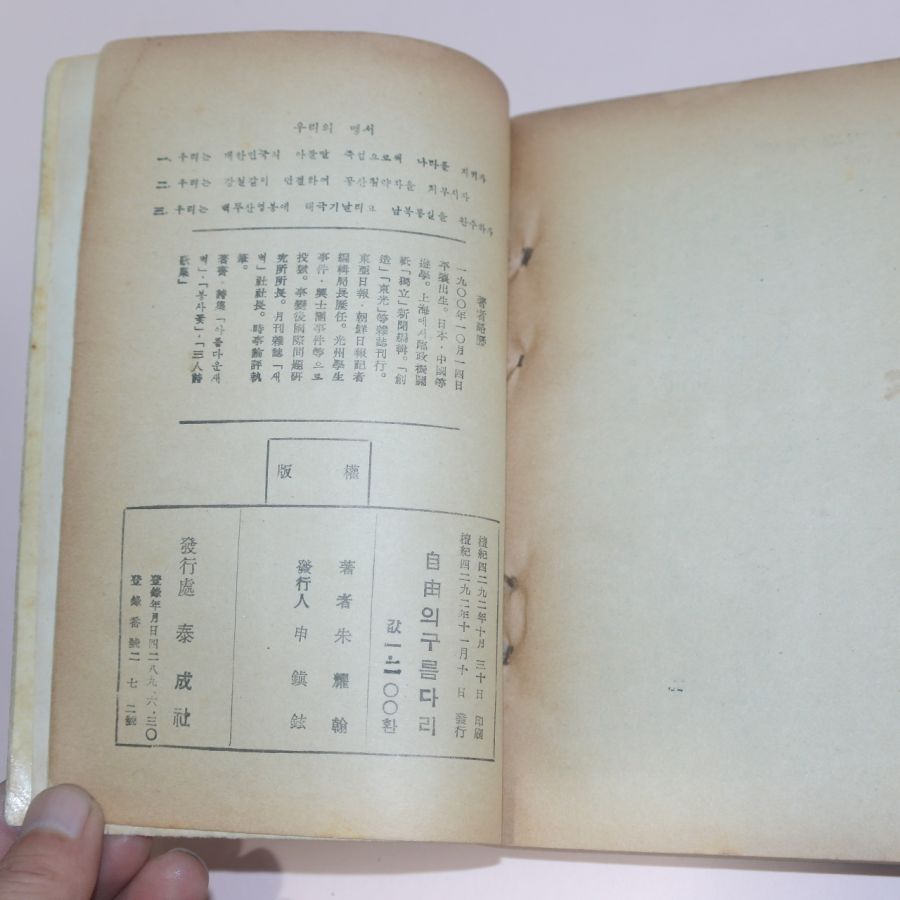 우리의 맹서
一. 우리는 대한민국의 아들딸 죽엄으로써 나라를 지키자
二. 우리는 강철같이 단결하여 공산침략자를 처부시자
三. 우리는 백두산영봉에 태극기날리고 남북통일을 완수하자
著者略歷
一九〇〇年一〇月一四日
平壤出生。日本·中國等
遊學。上海에서臨政機關
紙「獨立」新聞編輯。「創
造」「東光」等雜誌刊行。
東亞日報·朝鮮日報記者
編輯局長歷任。光州學生
事件·興士團事件等으로
投獄。事變後國際問題硏
究所所長。月刊雜誌「새
벽」社社長。時事論評執
筆。
著書·詩集「아름다운새
벽」·「봉사꽃」·「三人詩
歌集」
版 權
檀紀四二九二年十月三十日 印刷
檀紀四二九二年十一月十日 發行
自由의구름다리
값一·二〇〇환
著者 朱耀翰
發行人 申鎭鉉
發行處 泰成社
登錄年月日四二八九.六.三〇
登錄番號二七二號